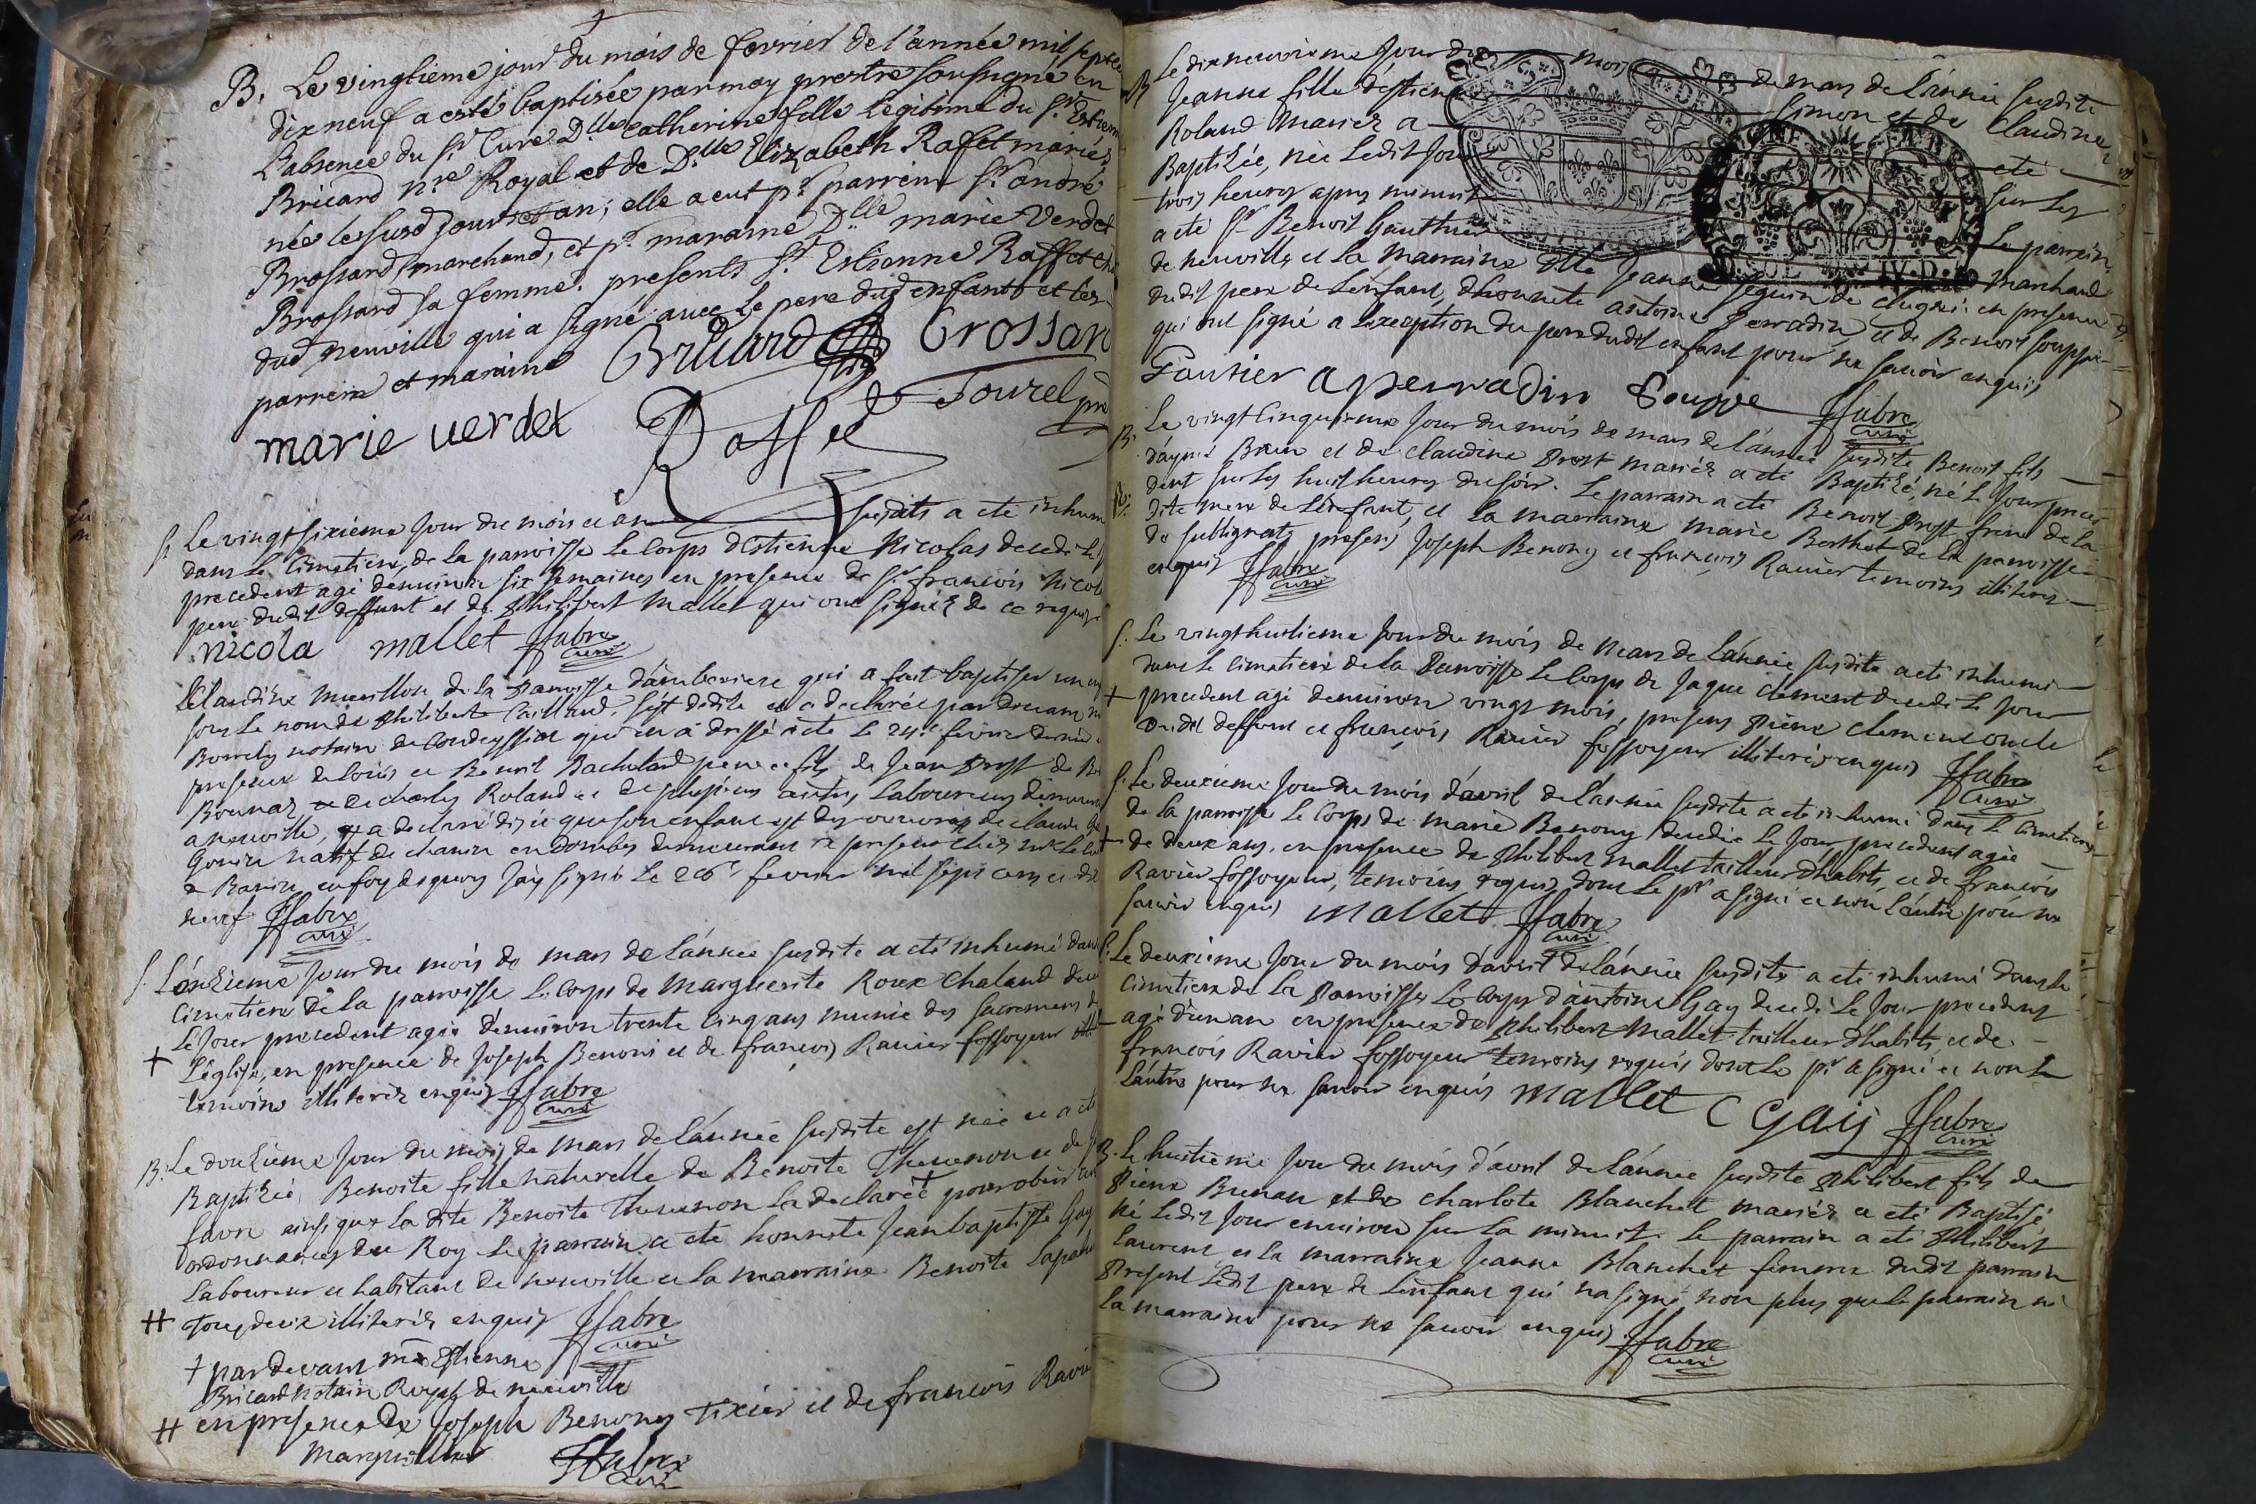 B. Le vingtieme jour du mois de fevrier de l'année mil sept
dix neuf a esté baptisée par moy prestre soussigné en
L'absence du Sr Curé Dlle Catherine fille Legitime du Sr Estien
Bricard nre Royal et de Dlle Elizabeth Rafet mariés
née le susd jour et an; elle a eut pr parrein Sr andré
Brossard marchand, et pr maraine Dlle marie Verdet
Brossard sa femme. presents Sr Estienne Raffet
dud neuville qui a signé avec Le pere dud enfant et les
parrein et maraine Bricard Brossar
marie verdet Raffet Tourel pre
S. Le vingt sixieme Jour du mois et an susdits a eté inhum
dans Le Cimetiere de la parroisse Le Corps d'Estienne Nicolas decedé le
precedent agé denviron six semaines en presence de Sr françois Nicol
pere dudit deffunt et de philibert Mallet qui ont signéz de ce requis
nicola mallet ffabre
curé
Claudine de la Parroisse d'amberieu qui a fait baptiser un
sous le nom de philibert Caillaud, s'est dedite et a declaréé pardevant
notaire de qui en a dressé acte le 24e fevrier dernie
presence de Loüis et Benoit Bachelard pere et fils de Jean prost de
Bounaz et de charles Roland et de plusieurs autres Laboureurs demeura
a neuville, et a declaré que son enfant est des oeuvres de claude
natif de chanin en dombes demeurant
en foy de quoy Jay signé Le 26e fevrier mil sept cens et dix
neuf ffabre
curé
S. L'onzieme Jour du mois de mars de l'année susdite a eté inhumé dans
Cimetiere de la parroisse Le Corps de Marguerite Roux Chaland dece
Le Jour precedent agée denviron trente cinq ans munie des sacremens de
L'eglise, en presence de Joseph Benoni et de françois Ravier fossoyeur
temoins illiterés enquis ffabre
curé
B. Le douzieme Jour du mois de mars de l'année susdite est née et a eté
Baptizée, Benoite fille naturelle de Benoite Thevenon et de
favre ainsi que la dite Benoite Thevenon la declaréé + pour obeir aux
ordonnances du Roy Le parrain a eté honnete Jean baptiste Gay
Laboureur et habitant de neuville et la marraine Benoite
# Tous deux illiterés enquis ffabre
curé
+ pardevant me Estienne
Bricard notaire Royal de neuville
# en presence de Joseph Benony Tixier et de françois Ravier
Marguillier ffabre
curé
B Le dixneuvieme Jour du mois de mars de l'année susdite
Jeanne fille d'Estienne Simon et de Claudine
Roland Mariez a eté
Baptizée, née Ledit Jour sur les
trois heures apres minuit Le parrain
a eté Sr Benoit Gauthier Marchand
de neuville et La Marraine Dlle Jeanne Seguin de en presence
dudit pere de Lenfant, dhonnete antoine perradin, et de Benoit souppe
qui ont signé a Lexception du pere dudit enfant pour ne sçavoir enquis
Gautier a perradin Souppe ffabre
curé
B. Le vingt cinquieme Jour du mois de mars de l'année susdite Benoit fils
d'aymé Brun et de claudine prost mariéz a eté Baptizé, né Le Jour prece
dent sur les huit heures du soir. Le parrain a eté Benoit prost frere de la
dite mere de Lenfant, et La marraine marie Berthet de la parroisse
de sublignat, presens Joseph Benony et françois Ravier temoins illiterés
enquis ffabre
curé
S. Le vingt huitieme Jour du mois de Mars de L'année susdite a eté inhumé
dans Le cimetiere de la Parroisse Le Corps de Jaque clement decedé Le Jour
+ precedent agé denviron vingt mois, presens pierre clement oncle
dudit deffunt et françois Ravier fossoyeur illiterés enquis ffabre
curé
S. Le deuxieme Jour du mois d'avril de l'année susdite a eté inhumé dans Le Cimetiere
de la parroisse Le Corps de marie Benony decedée Le Jour precedent agée
+ de deux ans, en presence de philibert mallet tailleur dhabits, et de francois
Ravier fossoyeur, temoins requis dont Le pr a signé et non L'autre pour ne
sçavoir enquis Mallet ffabre
curé
S. Le deuxieme Jour du mois d'avril de l'année susdite a eté inhumé dans Le
Cimetiere de La Parroisse Le Corps d'antoine Gay decedé Le Jour precedent
agé d'un an en presence de philibert Mallet tailleur dhabits, et de
francois Ravier fossoyeur temoins requis dont Le pr a signé et non
L'autre pour ne sçavoir enquis Mallet C Gay ffabre
curé
B. Le huitieme Jour du mois d'avril de l'année susdite philibert fils de
Pierre Brenan et de charlote Blanchet mariéz a eté Baptisé
né Ledit Jour environ sur La minuit. Le parrain a eté philibert
Laurent et La marraine Jeanne Blanchet femme dudit parrain
Present Ledit pere de Lenfant qui n'a signé non plus que Le parrain ni
La marraine pour ne sçavoir enquis ffabre
curé